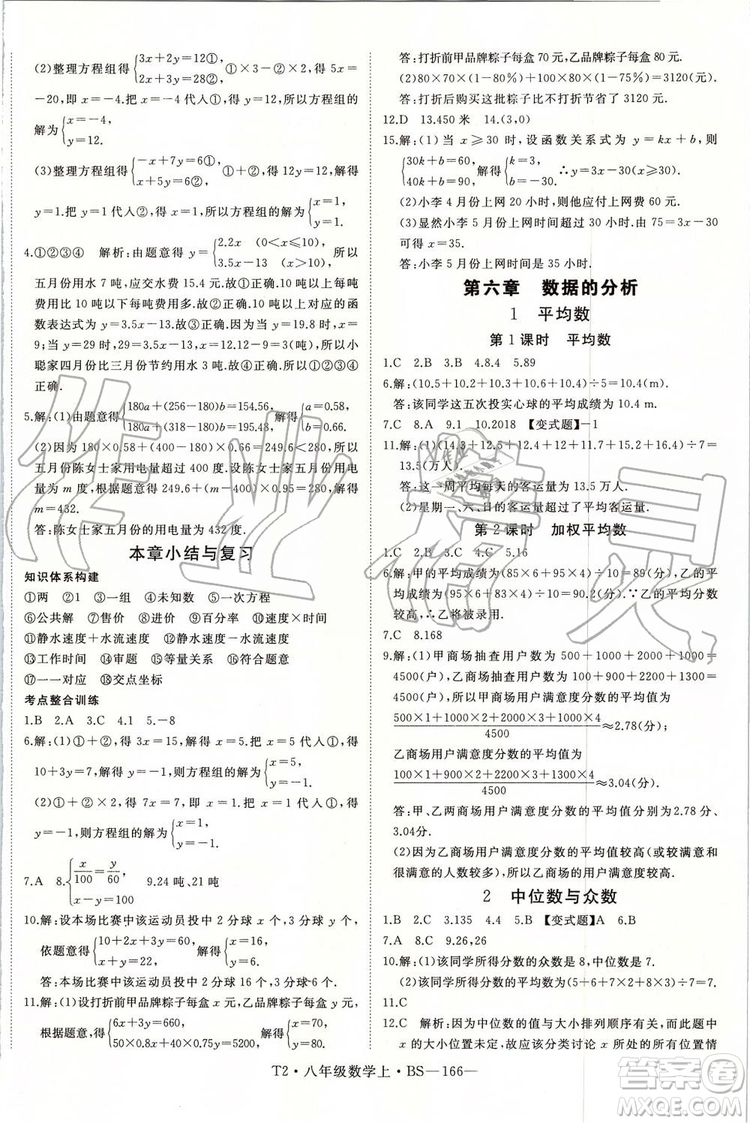 (2)整理方程组得{3x+2y=12①, 3x+7y=28②, ①×3-②×2,得5x=
-20,即x=-4.把x=-4代入①,得y=12.所以方程组的
解为{x=-4, y=12.
(3)整理方程组得{-x+7y=6①, x+3y=4②, ①+②,得10y=10,即
y=1.把y=1代入②,得x=1.所以方程组的解为{x=1, y=1.
4.①②③④ 解析:由题意得y={2.2x (0<x≤10), 3.5x-13 (x>10). 所以
五月份用水7吨,应交水费15.4元.当x>10时,y关于x的
函数表达式为y=3.5x-13.
聪家四月份比三月份节约用水3吨,所以①②③④
正确.
5.解:(1)由题意得{180a+(256-180)b=154.56, 180a+(318-180)b=195.48.
(2)因为180×0.58+(400-180)×0.66=249.6<280,所以
五月份陈女士家用电量超过400度.设陈女士家五月份用电量
为m度,根据题意得249.6+(m-400)×0.95=280,解得
m=432.
答:陈女士家五月份的用电量为432度.
本章小结与复习
知识体系构建
①两 ②1 ③一组 ④未知数 ⑤一次方程
⑥公共解 ⑦售价 ⑧进价 ⑨百分率 ⑩速度×时间
⑪静水速度+水流速度 ⑫静水速度-水流速度
⑬工作时间 ⑭审题 ⑮等量关系 ⑯工作总量
⑰一一对应 ⑱交点坐标
考点整合训练
1.B 2.A 3.C 4.1 5.-8
6.解:(1)①+②,得3x=15,解得x=5.把x=5代入②,得
10+3y=7,解得y=-1.所以原方程组的解为{x=5, y=-1.
(2)①+②×2,得7x=7,解得x=1.把x=1代入①,得
y=-1.所以原方程组的解为{x=1, y=-1.
7.A 8.{x/100=y/60, 9.24吨、21吨
10.解:设本场比赛中该运动员投中2分球x个,3分球y个,
依题意得 解得{x=16, y=6.
答:本场比赛中该运动员投中2分球16个,3分球6个.
11.解:(1)设打折前甲品牌粽子每盒x元,乙品牌粽子每盒y元,
根据题意,得{6x+3y=660, 50×0.8x+40×0.75y=5200, 解得{x=70, y=80.
答:打折前甲品牌粽子每盒70元,乙品牌粽子每盒80元.
(2)80×70×(1-80%)+100×80×(1-75%)=3120(元).
答:打折后购买这批粽子比不打折节省了3120元.
12.D 13.450米 14.(3,0)
15.解:(1)当x≥30时,设函数关系式为y=kx+b,则
{30k+b=60, 40k+b=90, 解得{k=3, b=-30. ∴y=3x-30(x≥30).
(2)小李4月份上网20小时,则他应付上网费60元.
(3)显然小李5月份上网时间超过30小时.当y=75时,75=3x-30
答:小李5月份上网时间是35小时.
第六章 数据的分析
1 平均数
第1课时 平均数
1.C 2.B 3.B 4.8.4 5.89
6.解:(10.5+10.2+10.3+10.6+10.4)÷5=10.4(m).
答:该同学这五次投实心球的平均成绩为10.4m.
7.C 8.A 9.1 10.2018 【变式题】-1
11.解:(1)(14.3+12.6+12.4+12.2+12.4+14.6+16)÷7=
13.5(万人).
答:这一周平均每天的客运量为13.5万人.
(2)星期一、六、日的客运量超过了平均客运量.
第2课时 加权平均数
1.C 2.D 3.C 4.C 5.16
6.解:甲的平均成绩为(85×6+93×4)÷10=88.2(分),乙的
平均成绩为(95×6+83×4)÷10=90.2(分).∵乙的平均分数
较高,∴乙将被录取.
7.C 8.168
9.解:(1)甲商场抽查用户数为500+1000+2000+1000=
4500(户),乙商场抽查用户数为100+900+2200+1300=
4500(户).所以甲商场满意度分数的平均值为
(500×1+1000×2+2000×3+1000×4)/4500≈2.78(分),
乙商场用户满意度分数的平均值为
(100×1+900×2+2200×3+1300×4)/4500≈3.04(分).
答:甲、乙两商场用户满意度分数的平均值分别为2.78分、
3.04分.
(2)因为乙商场用户满意度分数的平均值较高(或较满意和
很满意的人数较多),所以乙商场的用户满意度较高.
2 中位数与众数
1.B 2.C 3.135 4.A 5.B 【变式题】A 6.B
7.A 8.C 9.26,26
10.解:(1)该同学所得分数的众数是8,中位数是7.
(2)该同学所得分数的平均数为(5+6+7×2+8×3)÷7=7.
11.C
12.C 解析:因为中位数的值与大小排列顺序有关,而此题中
x的大小位置未定,故应该分类讨论x所处的所有位置情
T2·八年级数学上·BS—166—
作业精灵